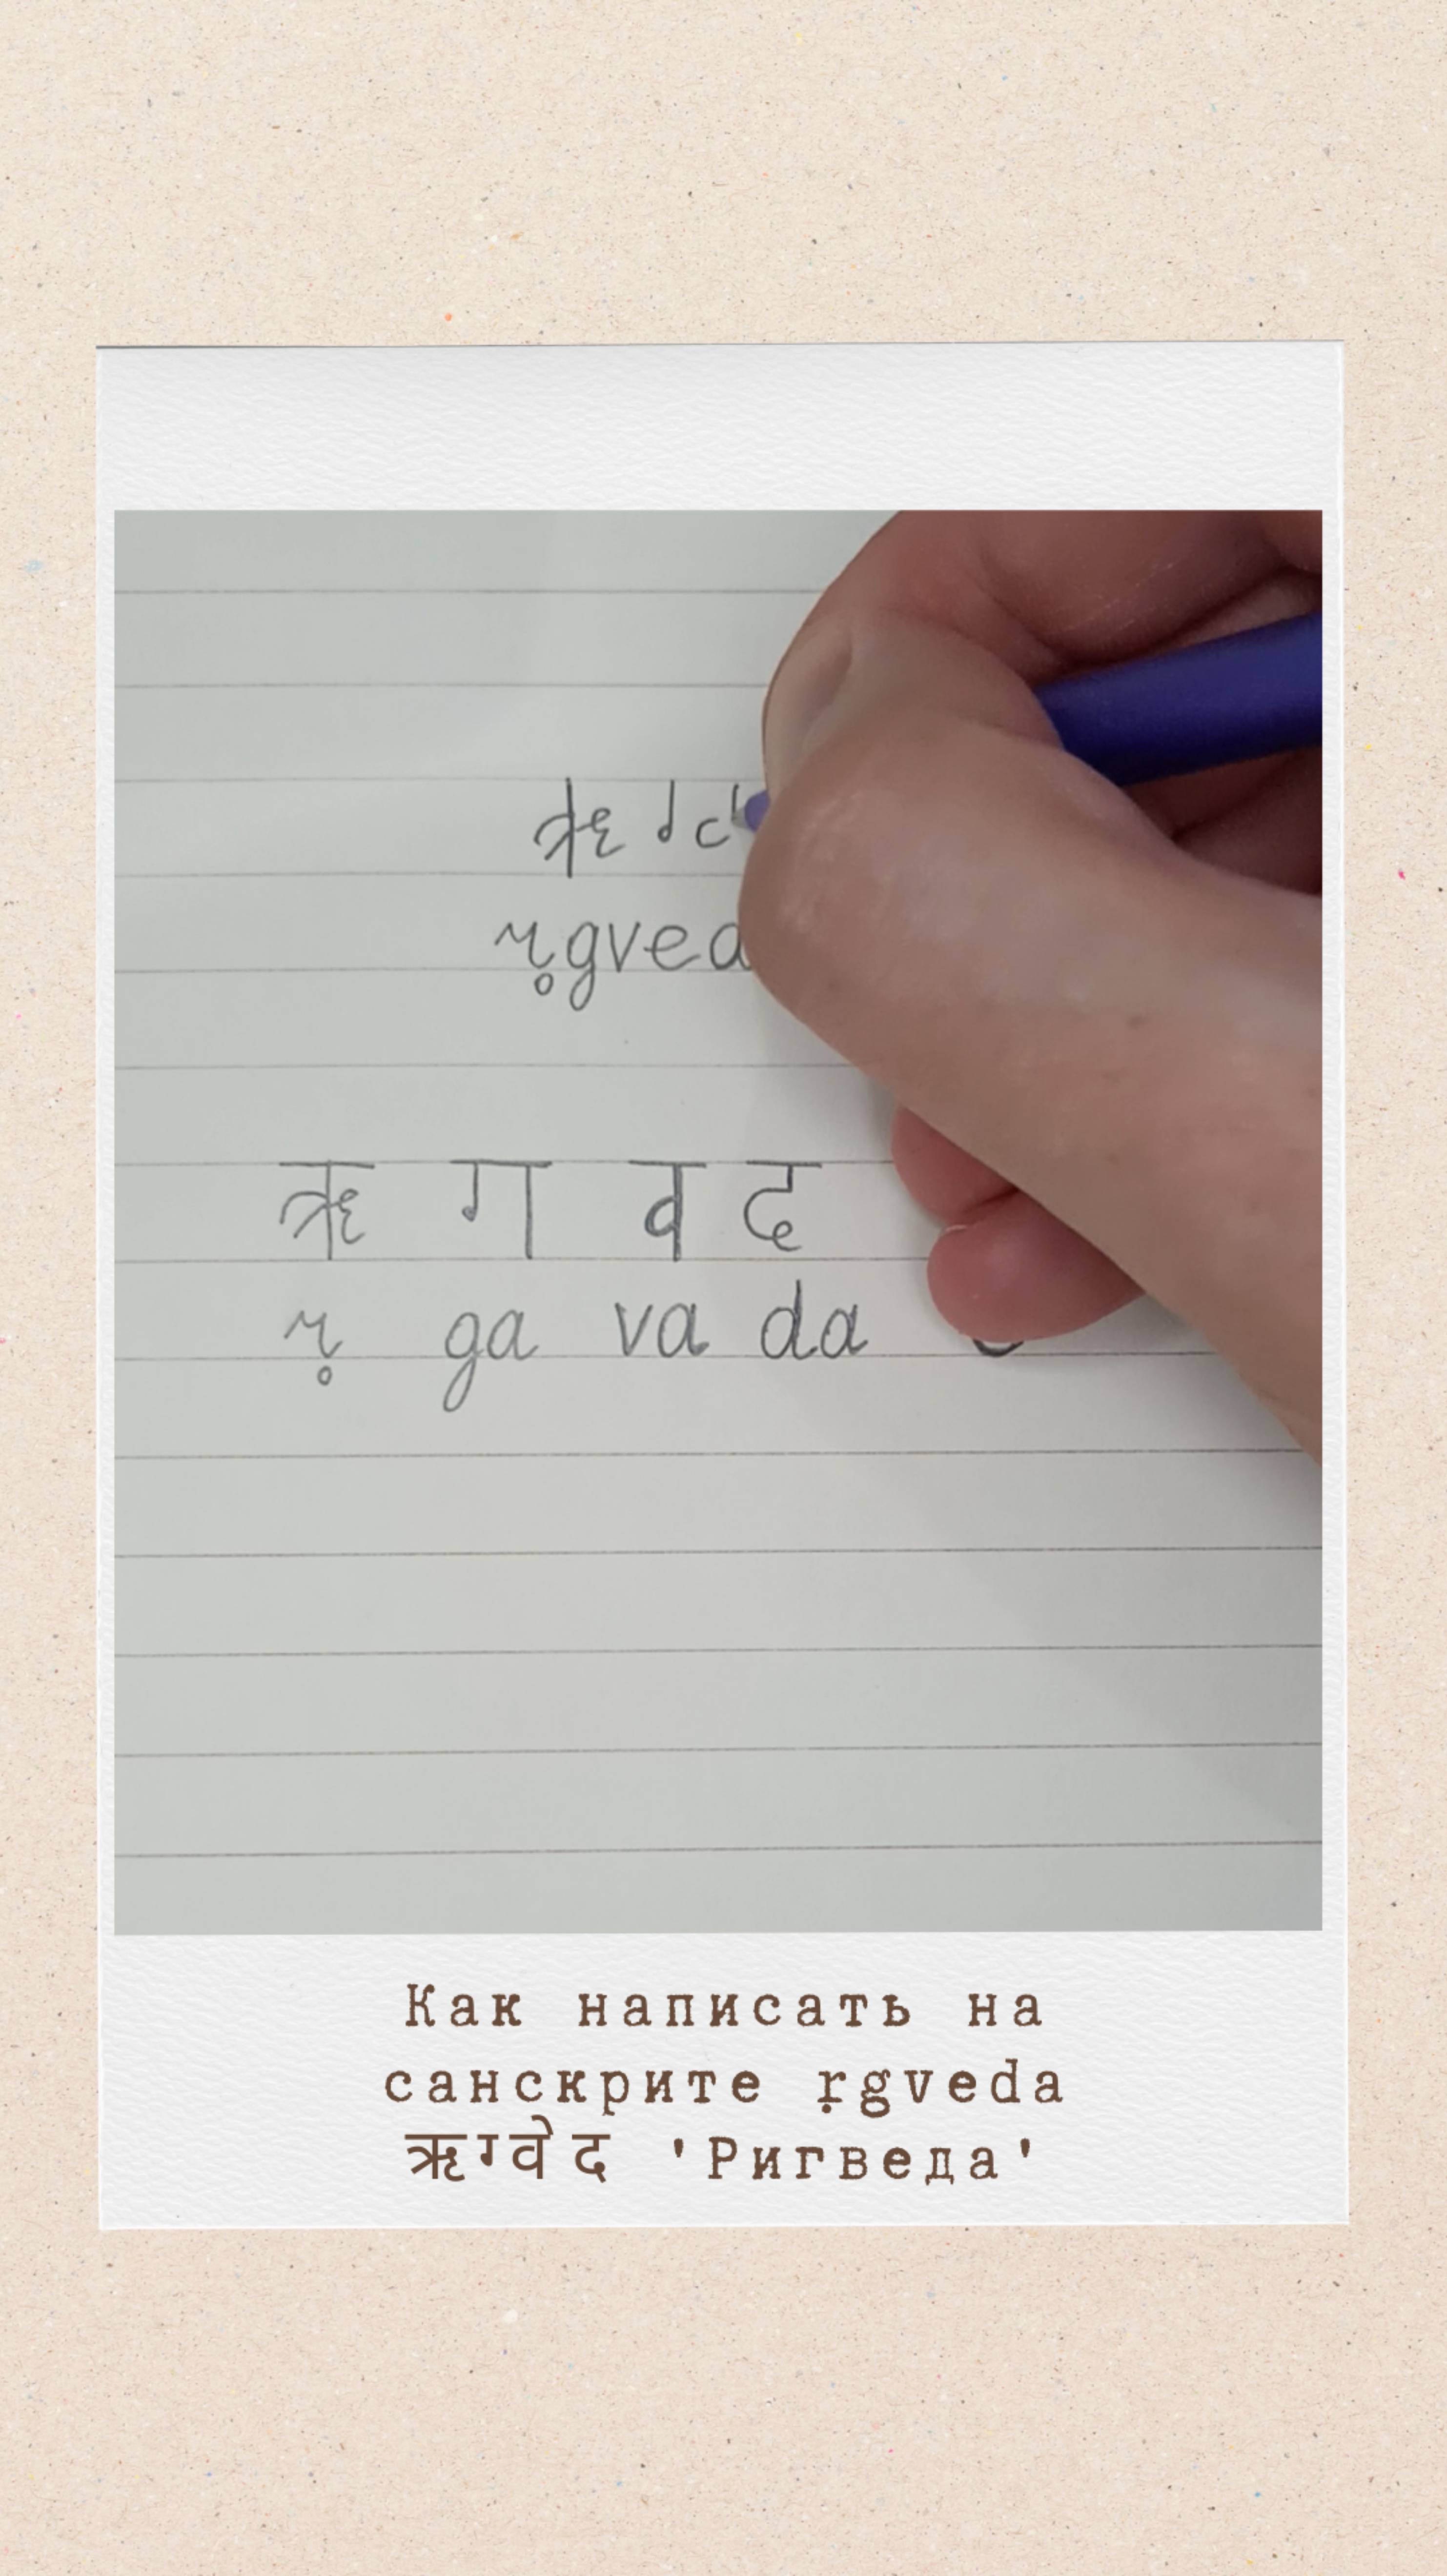 ऋ
r̥gved
ऋ ग व द
r̥ ga va da
Как написать на
санскрите ṛgveda
ऋग्वेद 'Ригведа'